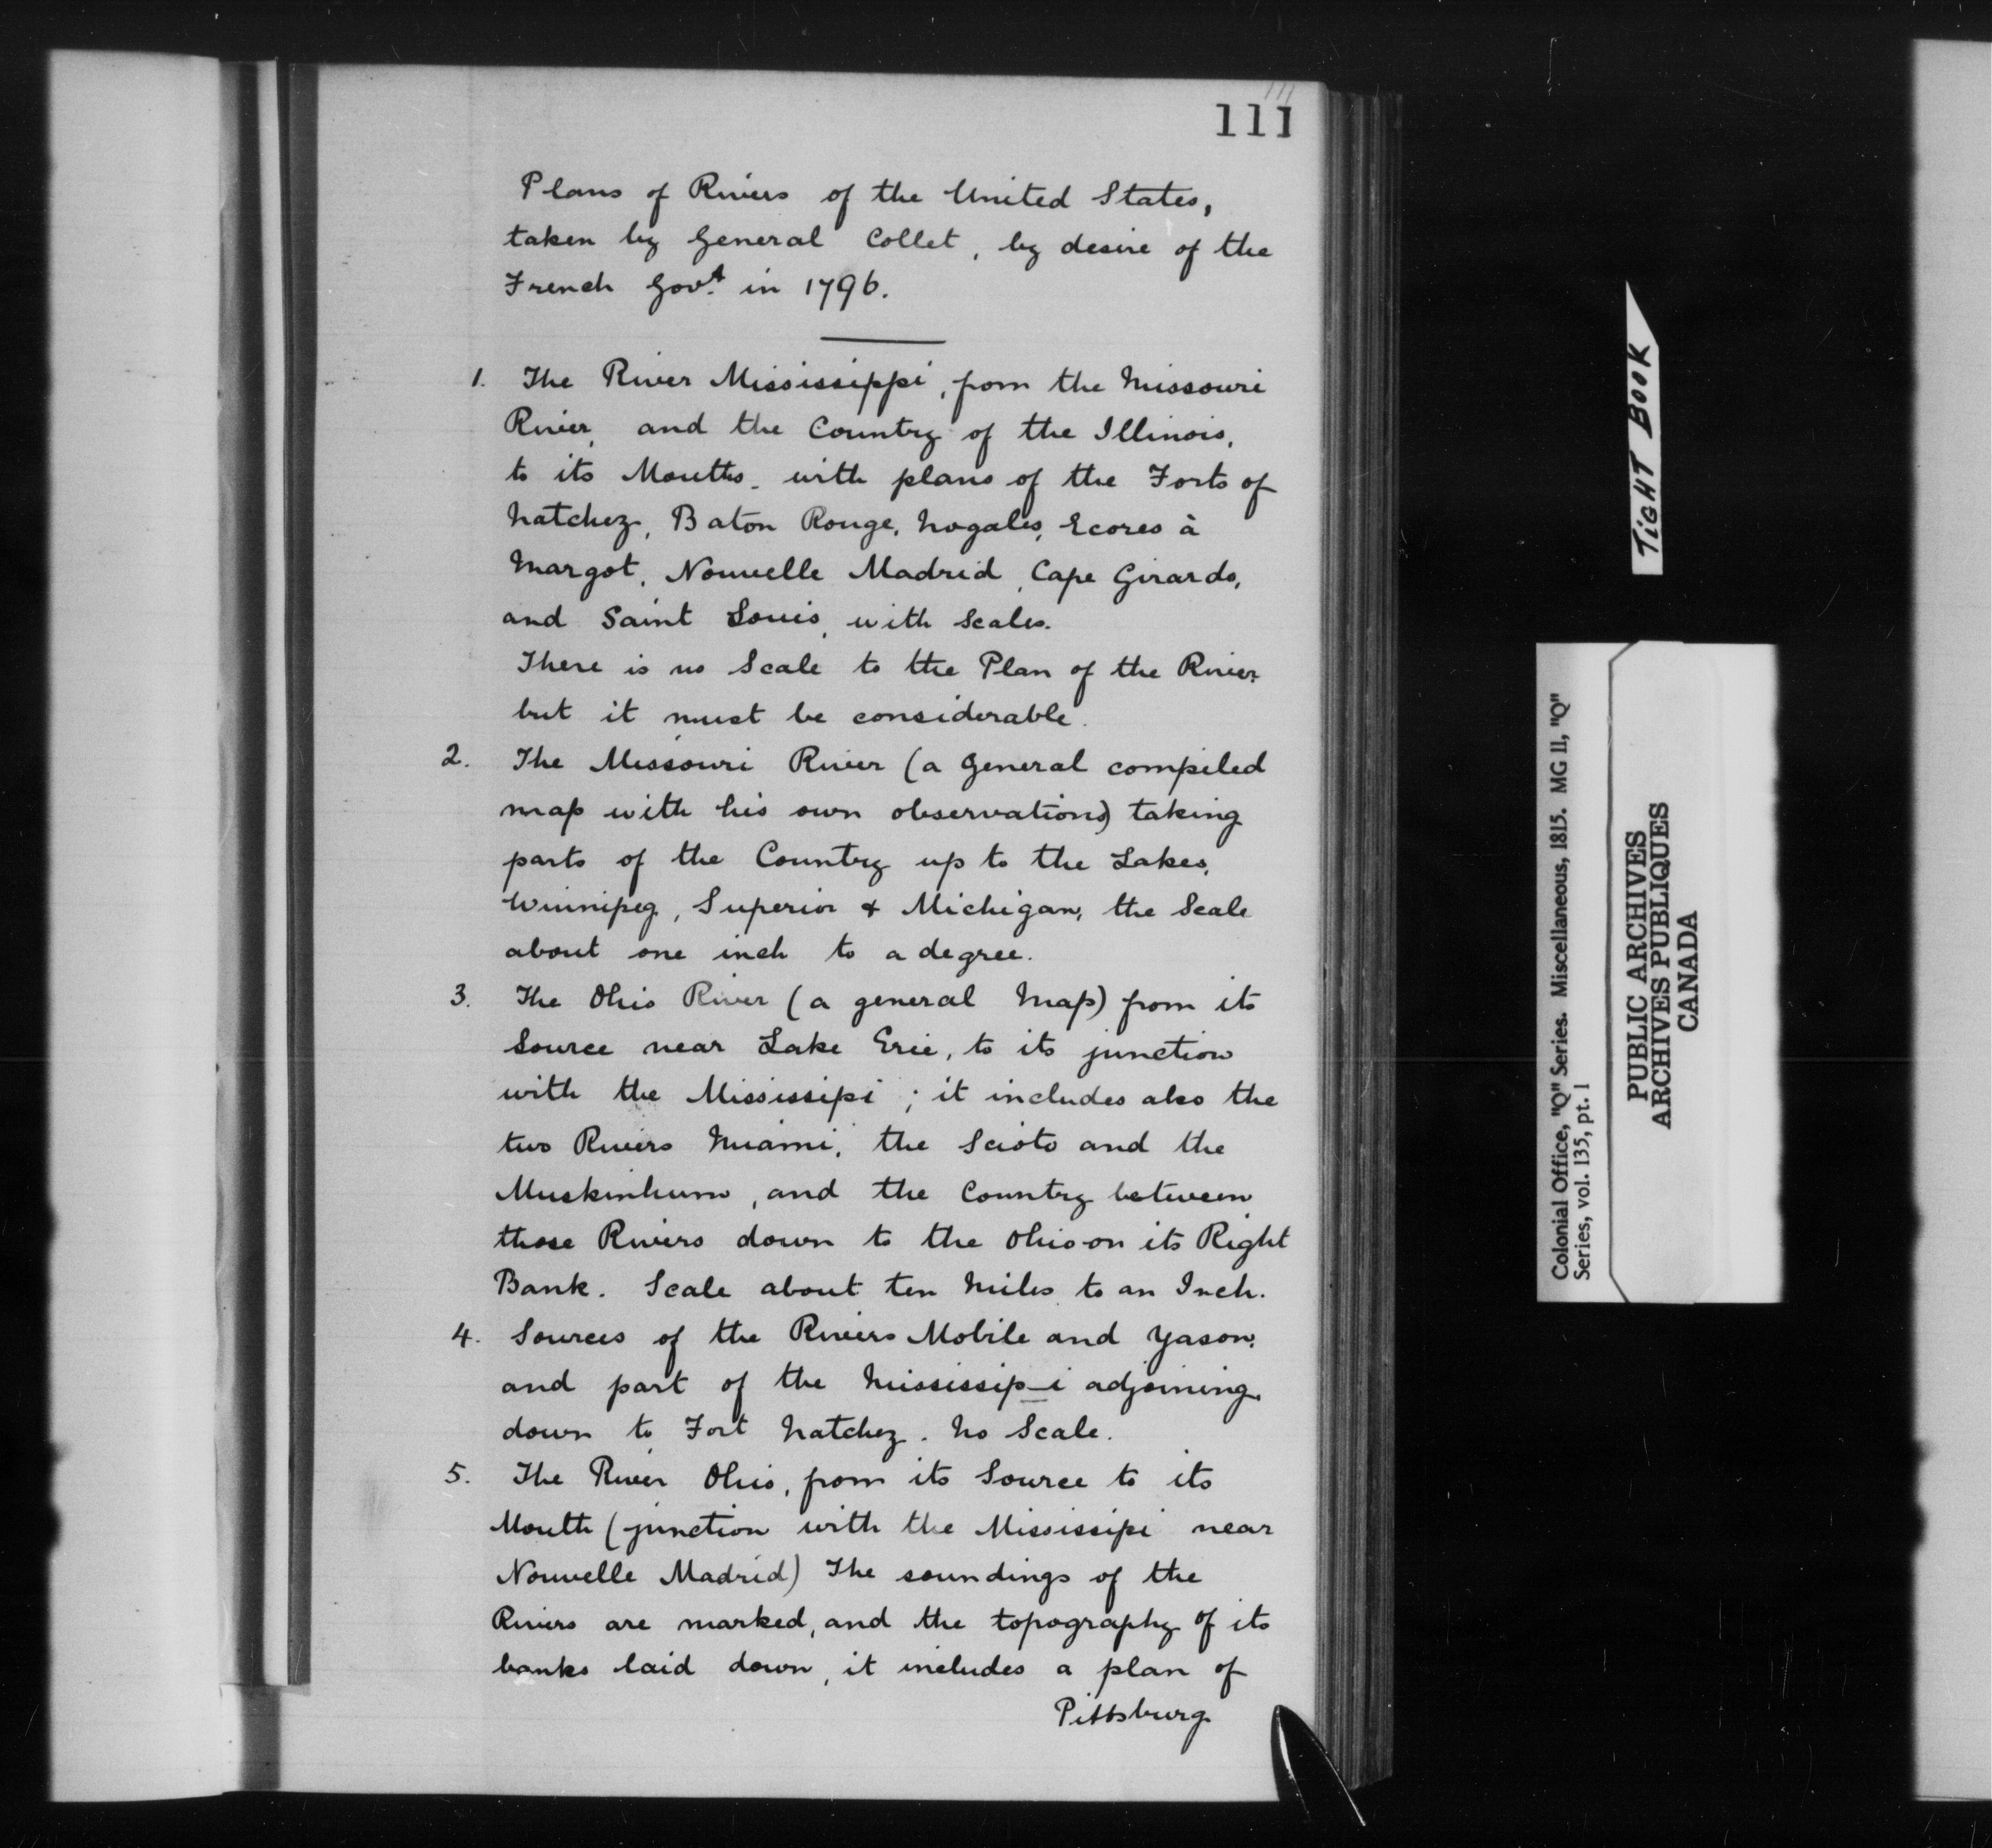 111
Plans of Rivers of the United States,
taken by General Collet, by desire of the
French Govt. in 1796.
1. The River Mississippi, from the Missouri
River, and the Country of the Illinois,
to its Mouths. with plans of the Forts of
Natchez, Baton Rouge, Nogales, Ecores à
Margot, Nouvelle Madrid, Cape Girardo,
and Saint Louis, with Scales.
There is no Scale to the Plan of the River
but it must be considerable.
2. The Missouri River (a general compiled
map with his own observations) taking
parts of the Country up to the Lakes,
Winnipeg, Superior & Michigan, the Scale
about one inch to a degree.
3. The Ohio River (a general Map) from its
Source near Lake Erie, to its junction
with the Mississipi; it includes also the
two Rivers Miami, the Scioto and the
Muskinhum, and the Country between
those Rivers down to the Ohio on its Right
Bank. Scale about ten Miles to an Inch.
4. Sources of the Rivers Mobile and Yason,
and part of the Mississip-i adjoining,
down to Fort Natchez. No Scale.
5. The River Ohio, from its Source to its
Mouth (junction with the Mississipi near
Nouvelle Madrid) The soundings of the
Rivers are marked, and the topography of its
banks laid down, it includes a plan of
Pittsburg
TIGHT BOOK
Colonial Office, "Q" Series. Miscellaneous, 1815. MG 11, "Q"
Series, vol. 135, pt. 1
PUBLIC ARCHIVES
ARCHIVES PUBLIQUES
CANADA